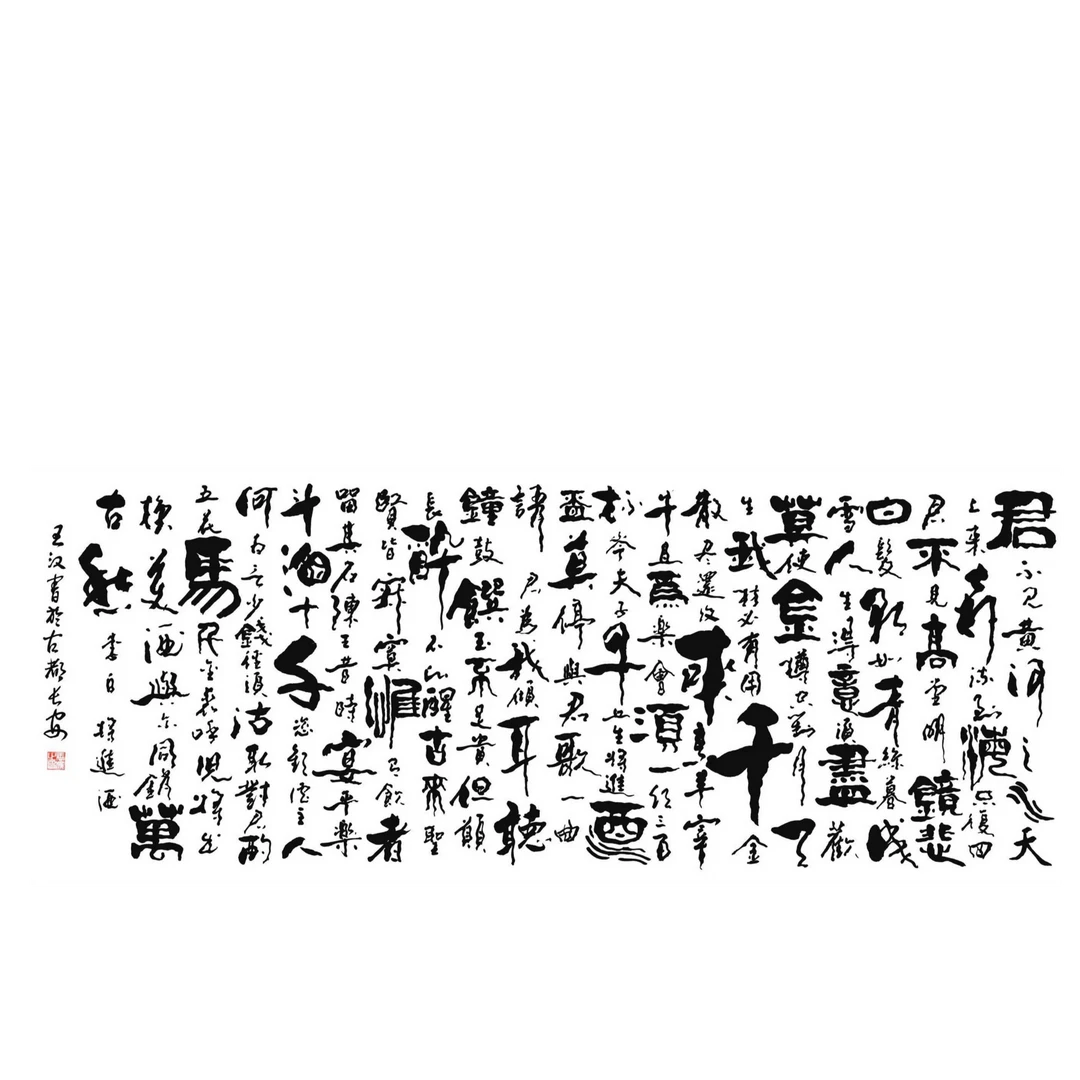 君不見黃河之水天
上来奔流到海不復回
君不見高堂明鏡悲
白髮朝如青絲暮成
雪人生得意須盡歡
莫使金樽空對月天
生我材必有用千金
散盡還復來烹羊宰
牛且為樂會須一飲三百
杯岑夫子丹丘生將進酒
盃莫停與君歌一曲
請君為我傾耳聽
鐘鼓饌玉不足貴但願
長醉不用醒古來聖
賢皆寂寞惟有飲者
留其名陳王昔時宴平樂
斗酒十千恣歡謔主人
何為言少錢徑須沽取對君酌
五花馬千金裘呼兒將出
換美酒與爾同銷萬
古愁 李白 將進酒
王汉書於古都长安